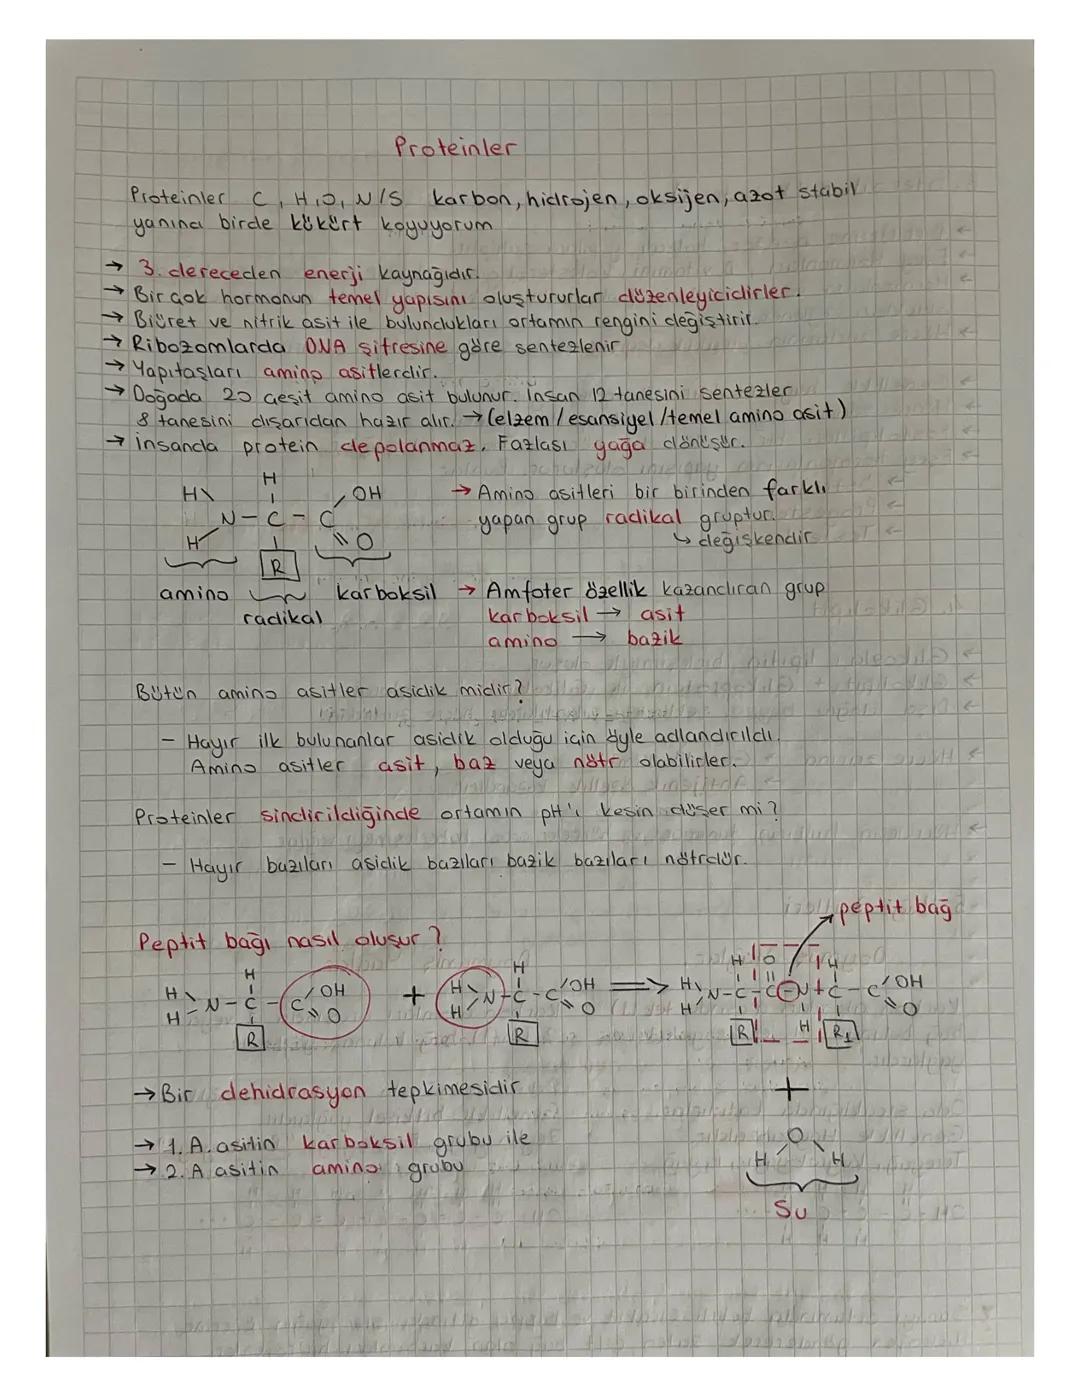 Proteinler
Proteinler C, H, O, N/S karbon, hidrojen, oksijen, azot stabil
yanına birde kükürt koyuyorum
→ 3. dereceden enerji kaynağıdır.
→ Bir çok hormonun temel yapısını oluştururlar düzenleyicidirler.
→ Biüret ve nitrik asit ile bulundukları ortamın rengini değiştirir.
→ Ribozomlarda DNA şifresine göre sentezlenir
→ Yapıtaşları amino asitlerdir.
→ Doğada 20 çeşit amino asit bulunur. İnsan 12 tanesini sentezler
8 tanesini dışarıdan hazır alır. → (elzem / esansiyel / temel amino asit)
→ İnsanda protein depolanmaz. Fazlası yağa dönüşür.
H
H OH
N - C - C
H O
R
amino karboksil
radikal
→ Amino asitleri bir birinden farklı
yapan grup radikal gruptur.
↳ değişkendir
→ Amfoter özellik kazandıran grup
karboksil → asit
amino → bazik
Bütün amino asitler asidik midir?
- Hayır ilk bulunanlar asidik olduğu için öyle adlandırıldı.
Amino asitler asit, baz veya nötr olabilirler.
Proteinler sindirildiğinde ortamın pH'ı kesin düşer mi?
- Hayır bazıları asidik bazıları bazik bazıları nötrdür.
peptit bağ
Peptit bağı nasıl oluşur?
H H H O H
H OH H OH H OH
N - C - C + N - C - C ⇒ N - C - C - N - C - C
H O H O H O
R R R H R1
→ Bir dehidrasyon tepkimesidir
+
→ 1. A. asitin karboksil grubu ile
→ 2. A asitin amino grubu
O
H H
Su